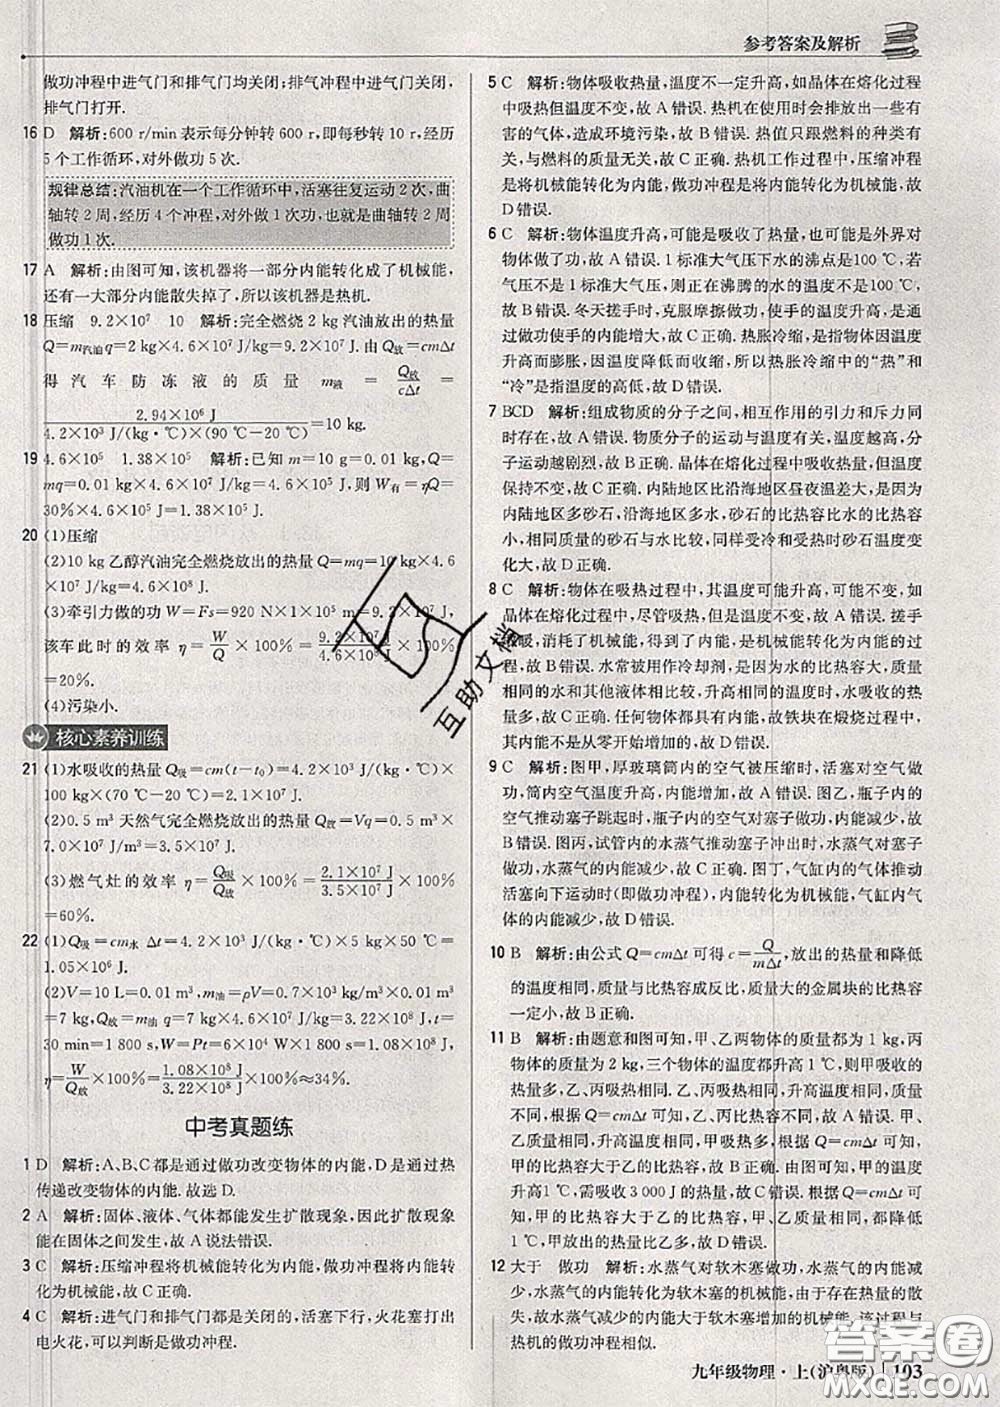 参考答案及解析
做功冲程中进气门和排气门均关闭;排气冲程中进气门关闭,
排气门打开.
16 D 解析:600 r/min 表示每分钟转 600 r,即每秒转 10 r,经历
5 个工作循环,对外做功 5 次.
规律总结:汽油机在一个工作循环中,活塞往复运动 2 次,曲
轴转 2 周,经历 4 个冲程,对外做 1 次功,也就是曲轴转 2 周
做功 1 次.
17 A 解析:由图可知,该机器将一部分内能转化成了机械能,
还有一大部分内能散失掉了,所以该机器是热机.
18 压缩 9.2×10⁷ 10 解析:完全燃烧 2 kg 汽油放出的热量
Q=m汽油q=2 kg×4.6×10⁷ J/kg=9.2×10⁷ J. 由 Q放=cmΔt
得汽车防冻液的质量 m液 = Q放/cΔt =
2.94×10⁶ J/4.2×10³ J/(kg·℃)×(90 ℃-20 ℃)=10 kg.
19 4.6×10⁵ 1.38×10⁵ 解析:已知 m=10 g=0.01 kg,Q=
mq=0.01 kg×4.6×10⁷ J/kg=4.6×10⁵ J,则 W有=ηQ=
30%×4.6×10⁵ J=1.38×10⁵ J.
20 (1)压缩
(2)10 kg 乙醇汽油完全燃烧放出的热量 Q=mq=10 kg×4.6
×10⁷ J/kg=4.6×10⁸ J.
(3)牵引力做的功 W=Fs=920 N×1×10⁵ m=9.2×10⁷ J,
该车此时的效率 η=W/Q×100%=9.2×10⁷ J/4.6×10⁸ J×100%
=20%.
(4)污染小.
核心素养训练
21 (1)水吸收的热量 Q吸=cm(t-t₀)=4.2×10³ J/(kg·℃)×
100 kg×(70 ℃-20 ℃)=2.1×10⁷ J.
(2)0.5 m³ 天然气完全燃烧放出的热量 Q放=Vq=0.5 m³×
7.0×10⁷ J/m³=3.5×10⁷ J.
(3)燃气灶的效率 η=Q吸/Q放×100%=2.1×10⁷ J/3.5×10⁷ J×100%
=60%.
22 (1)Q吸=cm水 Δt=4.2×10³ J/(kg·℃)×5 kg×50 ℃=
1.05×10⁶ J.
(2)V=10 L=0.01 m³,m油=ρV=0.7×10³ kg/m³×0.01 m³
=7 kg,Q放=m油 q=7 kg×4.6×10⁷ J/kg=3.22×10⁸ J,t=
30 min=1 800 s,W=Pt=6×10⁴ W×1 800 s=1.08×10⁸ J,
η=W/Q放×100%=1.08×10⁸ J/3.22×10⁸ J×100%≈34%.
中考真题练
1 D 解析:A、B、C 都是通过做功改变物体的内能,D 是通过热
传递改变物体的内能. 故选 D.
2 A 解析:固体、液体、气体都能发生扩散现象,因此扩散现象
能在固体之间发生,故 A 说法错误.
3 C 解析:压缩冲程将机械能转化为内能,做功冲程将内能转
化为机械能,故 C 正确.
4 C 解析:进气门和排气门都是关闭的,活塞下行,火花塞打出
电火花,可以判断是做功冲程.
5 C 解析:物体吸收热量,温度不一定升高,如晶体在熔化过程
中吸热但温度不变,故 A 错误. 热机在使用时会排放出一些有
害的气体,造成环境污染,故 B 错误. 热值只跟燃料的种类有
关,与燃料的质量无关,故 C 正确. 热机工作过程中,压缩冲程
是将机械能转化为内能,做功冲程是将内能转化为机械能,故
D 错误.
6 C 解析:物体温度升高,可能是吸收了热量,也可能是外界对
物体做了功,故 A 错误. 1 标准大气压下水的沸点是100 ℃,若
气压不是 1 标准大气压,则正在沸腾的水的温度不是 100 ℃,
故 B 错误. 冬天搓手时,克服摩擦做功,使手的温度升高,是通
过做功使手的内能增大,故 C 正确. 热胀冷缩,是指物体因温度
升高而膨胀,因温度降低而收缩,所以热胀冷缩中的“热”和
“冷”是指温度的高低,故 D 错误.
7 BCD 解析:组成物质的分子之间,相互作用的引力和斥力同
时存在,故 A 错误. 物质分子的运动与温度有关,温度越高,分
子运动越剧烈,故 B 正确. 晶体在熔化过程中要吸热,但温度
保持不变,故 C 正确. 内陆地区比沿海地区昼夜温差大,是因为
内陆地区多砂石,沿海地区多水,砂石的比热容比水的比热容
小,相同质量的砂石与水比较,同样受冷和受热时砂石温度变
化大,故 D 正确.
8 C 解析:物体在吸热过程中,其温度可能升高,可能不变,如
晶体在熔化过程中,尽管吸热,但温度保持不变,故 A 错误. 搓手
取暖,消耗了机械能,得到了内能,是机械能转化为内能的过
程,故 B 错误. 水常被用作冷却剂,是因为水的比热容大,质量
相同的水和其他液体相比较,升高相同的温度,水吸收的热量
多,故 C 正确. 任何物体都具有内能,故铁块在煅烧过程中,其
内能不是从零开始增加的,故 D 错误.
9 C 解析:图甲,厚玻璃筒内的空气被压缩时,活塞对空气做
功,筒内空气温度升高,内能增加,故 A 错误. 图乙,瓶子内的
空气推动塞子跳起时,瓶子内的空气对塞子做功,内能减少,
故 B 错误. 图丙,试管内的水蒸气推动塞子冲出时,水蒸气对塞子
做功,水蒸气的内能减少,故 C 正确. 图丁,气缸内的气体推动
活塞向下运动时(即做功冲程),内能转化为机械能,气缸内气
体的内能减少,故 D 错误.
10 B 解析:由公式 Q=cmΔt 可得 c=Q/mΔt,放出的热量和降低
的温度相同,质量与比热容成反比,质量大的金属块的比热容
一定小,故 B 正确.
11 B 解析:由题意和图可知,甲、乙两物体的质量都为 1 kg,丙
物体的质量为 2 kg,三个物体的温度都升高 1 ℃,则甲吸收的
热量多,乙、丙吸热相同. 乙、丙吸热相同,升高温度相同,质量
不同,根据 Q=cmΔt 可知,乙、丙比热容不同,故 A 错误. 甲、
乙质量相同,升高温度相同,甲吸热多,根据 Q=cmΔt 可知,
甲的比热容大于乙的比热容,故 B 正确. 由图可知,甲的温度
升高 1 ℃,需吸收 3 000 J 的热量,故 C 错误. 根据 Q=cmΔt 可
知,甲的比热容大于乙的比热容,甲、乙的质量相同,都降低
1 ℃,甲放出的热量比乙多,故 D 错误.
12 大于 做功 解析:水蒸气对软木塞做功,水蒸气的内能减
少,水蒸气的内能转化为软木塞的机械能,由于存在热量的散
失,故水蒸气减少的内能大于软木塞增加的机械能,该过程与
热机的做功冲程相似.
九年级物理·上(沪粤版) 103
互助文档
答案圈
MXQE.COM